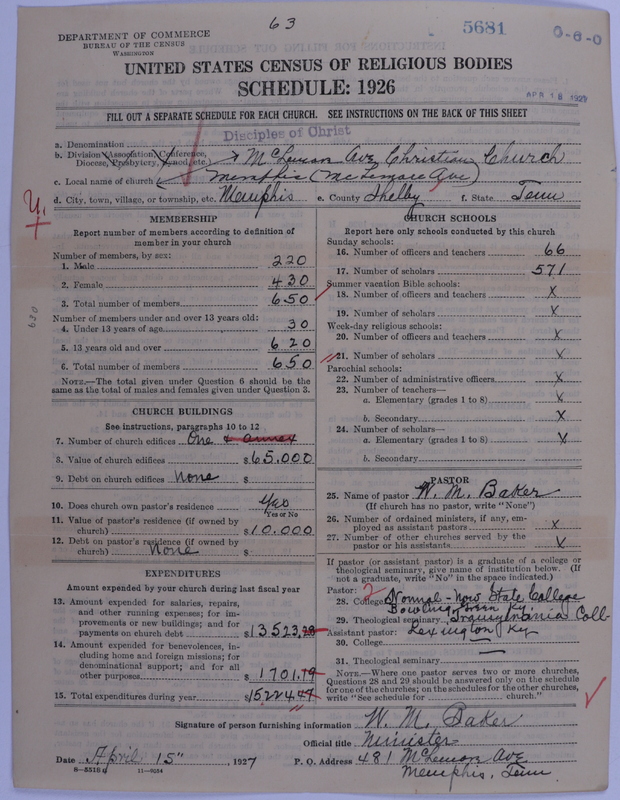 63
DEPARTMENT OF COMMERCE
BUREAU OF THE CENSUS
WASHINGTON
5681
0-6-0
UNITED STATES CENSUS OF RELIGIOUS BODIES
SCHEDULE: 1926
APR 18 1927
FILL OUT A SEPARATE SCHEDULE FOR EACH CHURCH. SEE INSTRUCTIONS ON THE BACK OF THIS SHEET
Disciples of Christ
a. Denomination
b. Division (Association, Conference, Diocese, Presbytery, Synod, etc. McLemore Ave Christian Church
c. Local name of church Memphis (McLemore Ave)
d. City, town, village, or township, etc. Memphis e. County Shelby f. State Tenn
MEMBERSHIP
Report number of members according to definition of
member in your church
Number of members, by sex:
1. Male 220
2. Female 430
3. Total number of members 650
Number of members under and over 13 years old:
4. Under 13 years of age 30
5. 13 years old and over 620
6. Total number of members 650
NOTE.—The total given under Question 6 should be the
same as the total of males and females given under Question 3.
630
CHURCH BUILDINGS
See instructions, paragraphs 10 to 12
7. Number of church edifices One & annex
8. Value of church edifices $65,000
9. Debt on church edifices None $
10. Does church own pastor's residence Yes
Yes or No
11. Value of pastor's residence (if owned by
church) $10,000
12. Debt on pastor's residence (if owned by
church) None $
EXPENDITURES
Amount expended by your church during last fiscal year
13. Amount expended for salaries, repairs,
and other running expenses; for im-
provements or new buildings; and for
payments on church debt $13523.28
14. Amount expended for benevolences, in-
cluding home and foreign missions; for
denominational support; and for all
other purposes $1701.19
15. Total expenditures during year $15224.47
CHURCH SCHOOLS
Report here only schools conducted by this church
Sunday schools:
16. Number of officers and teachers 66
17. Number of scholars 571
Summer vacation Bible schools:
18. Number of officers and teachers X
19. Number of scholars X
Week-day religious schools:
20. Number of officers and teachers X
21. Number of scholars X
Parochial schools:
22. Number of administrative officers X
23. Number of teachers—
a. Elementary (grades 1 to 8) X
b. Secondary X
24. Number of scholars—
a. Elementary (grades 1 to 8) X
b. Secondary
PASTOR
25. Name of pastor W. M. Baker
(If church has no pastor, write "None")
26. Number of ordained ministers, if any, em-
ployed as assistant pastors X
27. Number of other churches served by the
pastor or his assistants X
If pastor (or assistant pastor) is a graduate of a college or
theological seminary, give name of institution below. (If
not a graduate, write "No" in the space indicated.)
Pastor:
28. College Normal - Now State College
Bowling Green Ky.
29. Theological seminary Transylvania Coll
Assistant pastor: Lexington Ky
30. College
31. Theological seminary
NOTE.—Where one pastor serves two or more churches,
Questions 28 and 29 should be answered only on the schedule
for one of the churches; on the schedules for the other churches,
write "See schedule for church."
Signature of person furnishing information W. M. Baker
Official title Minister
Date April 15", 1927 P. O. Address 481 McLemore Ave
Memphis, Tenn
8—5518 11—9054